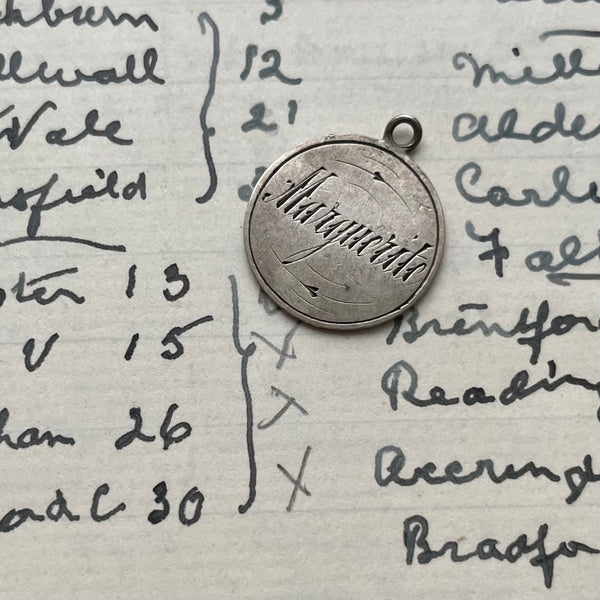 ckburn 3
llwall 12 Mill
Vale 21 Alde
sfield Carl
Marguerite
Fal
ster 13 Brentfor
V 15 X Reading
ham 26 Accring
ord C 30 X Bradfo